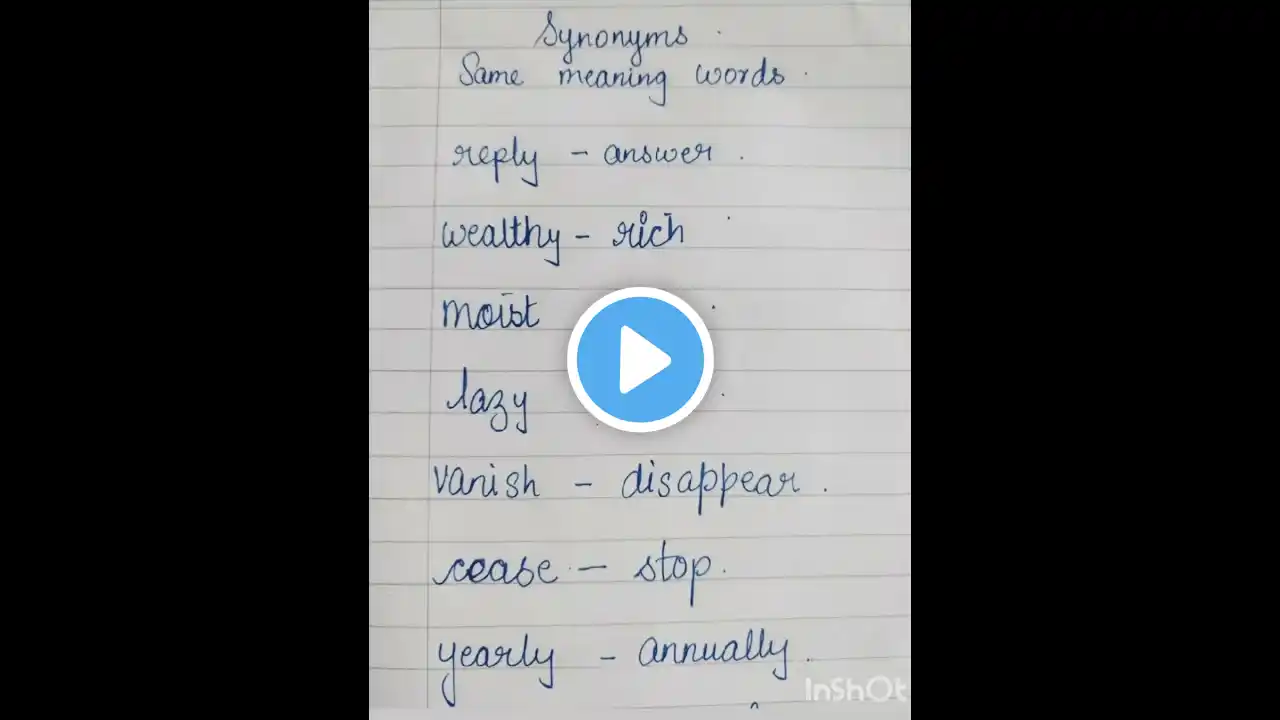 Synonyms
Same meaning words
reply - answer.
wealthy - rich
moist
lazy
vanish - disappear.
cease - stop.
yearly - annually.
InShOt